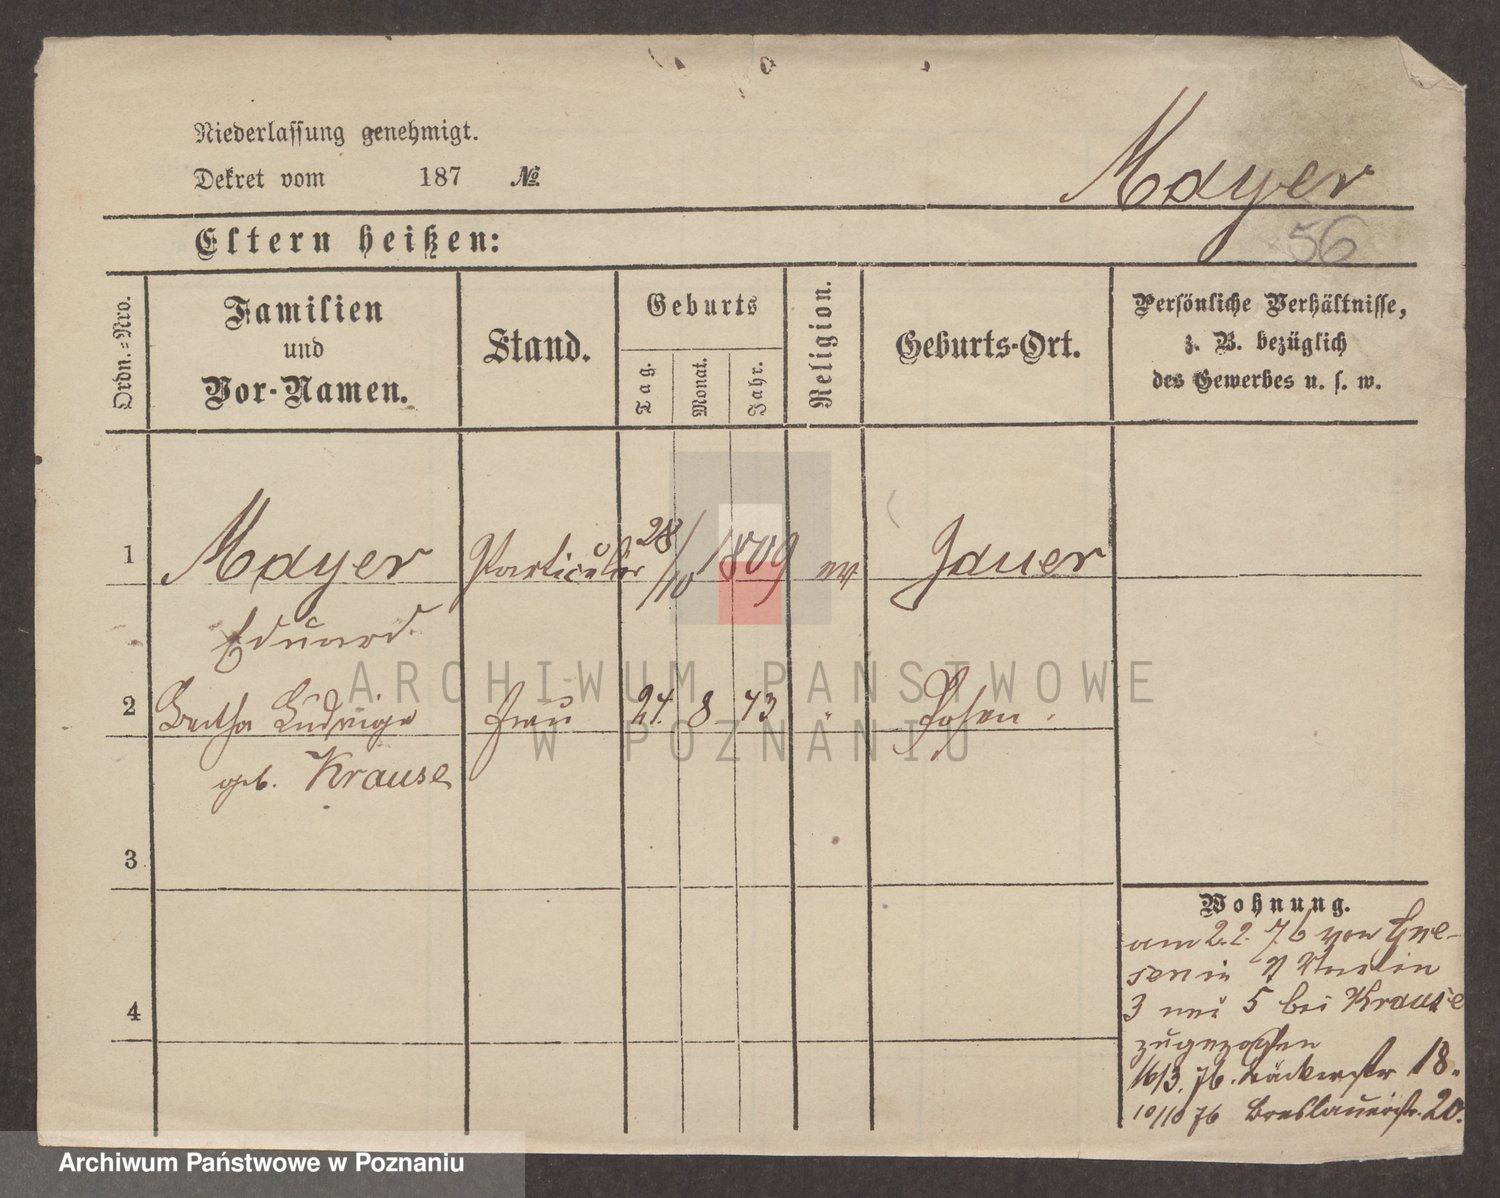 Niederlassung genehmigt.
Dekret vom 187 №.
Mayer
56
Eltern heißen:
Ordn.-Nro.
Familien
und
Vor-Namen.
Stand.
Geburts
Tag.
Monat.
Jahr.
Religion.
Geburts-Ort.
Persönliche Verhältnisse,
z. B. bezüglich
des Gewerbes u. s. w.
1 Mayer Particulier 28/10 1809 ev Jauer
Eduard
2 Bertha Ludwiga Frau 24. 8 43 " Posen.
geb. Krause
3
4
Wohnung.
am 2.2.76 von Gne-
sen in
3 neu 5 bei Krause
zugezogen
16/3. 76. Bäckerstr 18.
10/10 76 Breslauerstr. 20.
ARCHIWUM PAŃSTWOWE
W POZNANIU
Archiwum Państwowe w Poznaniu